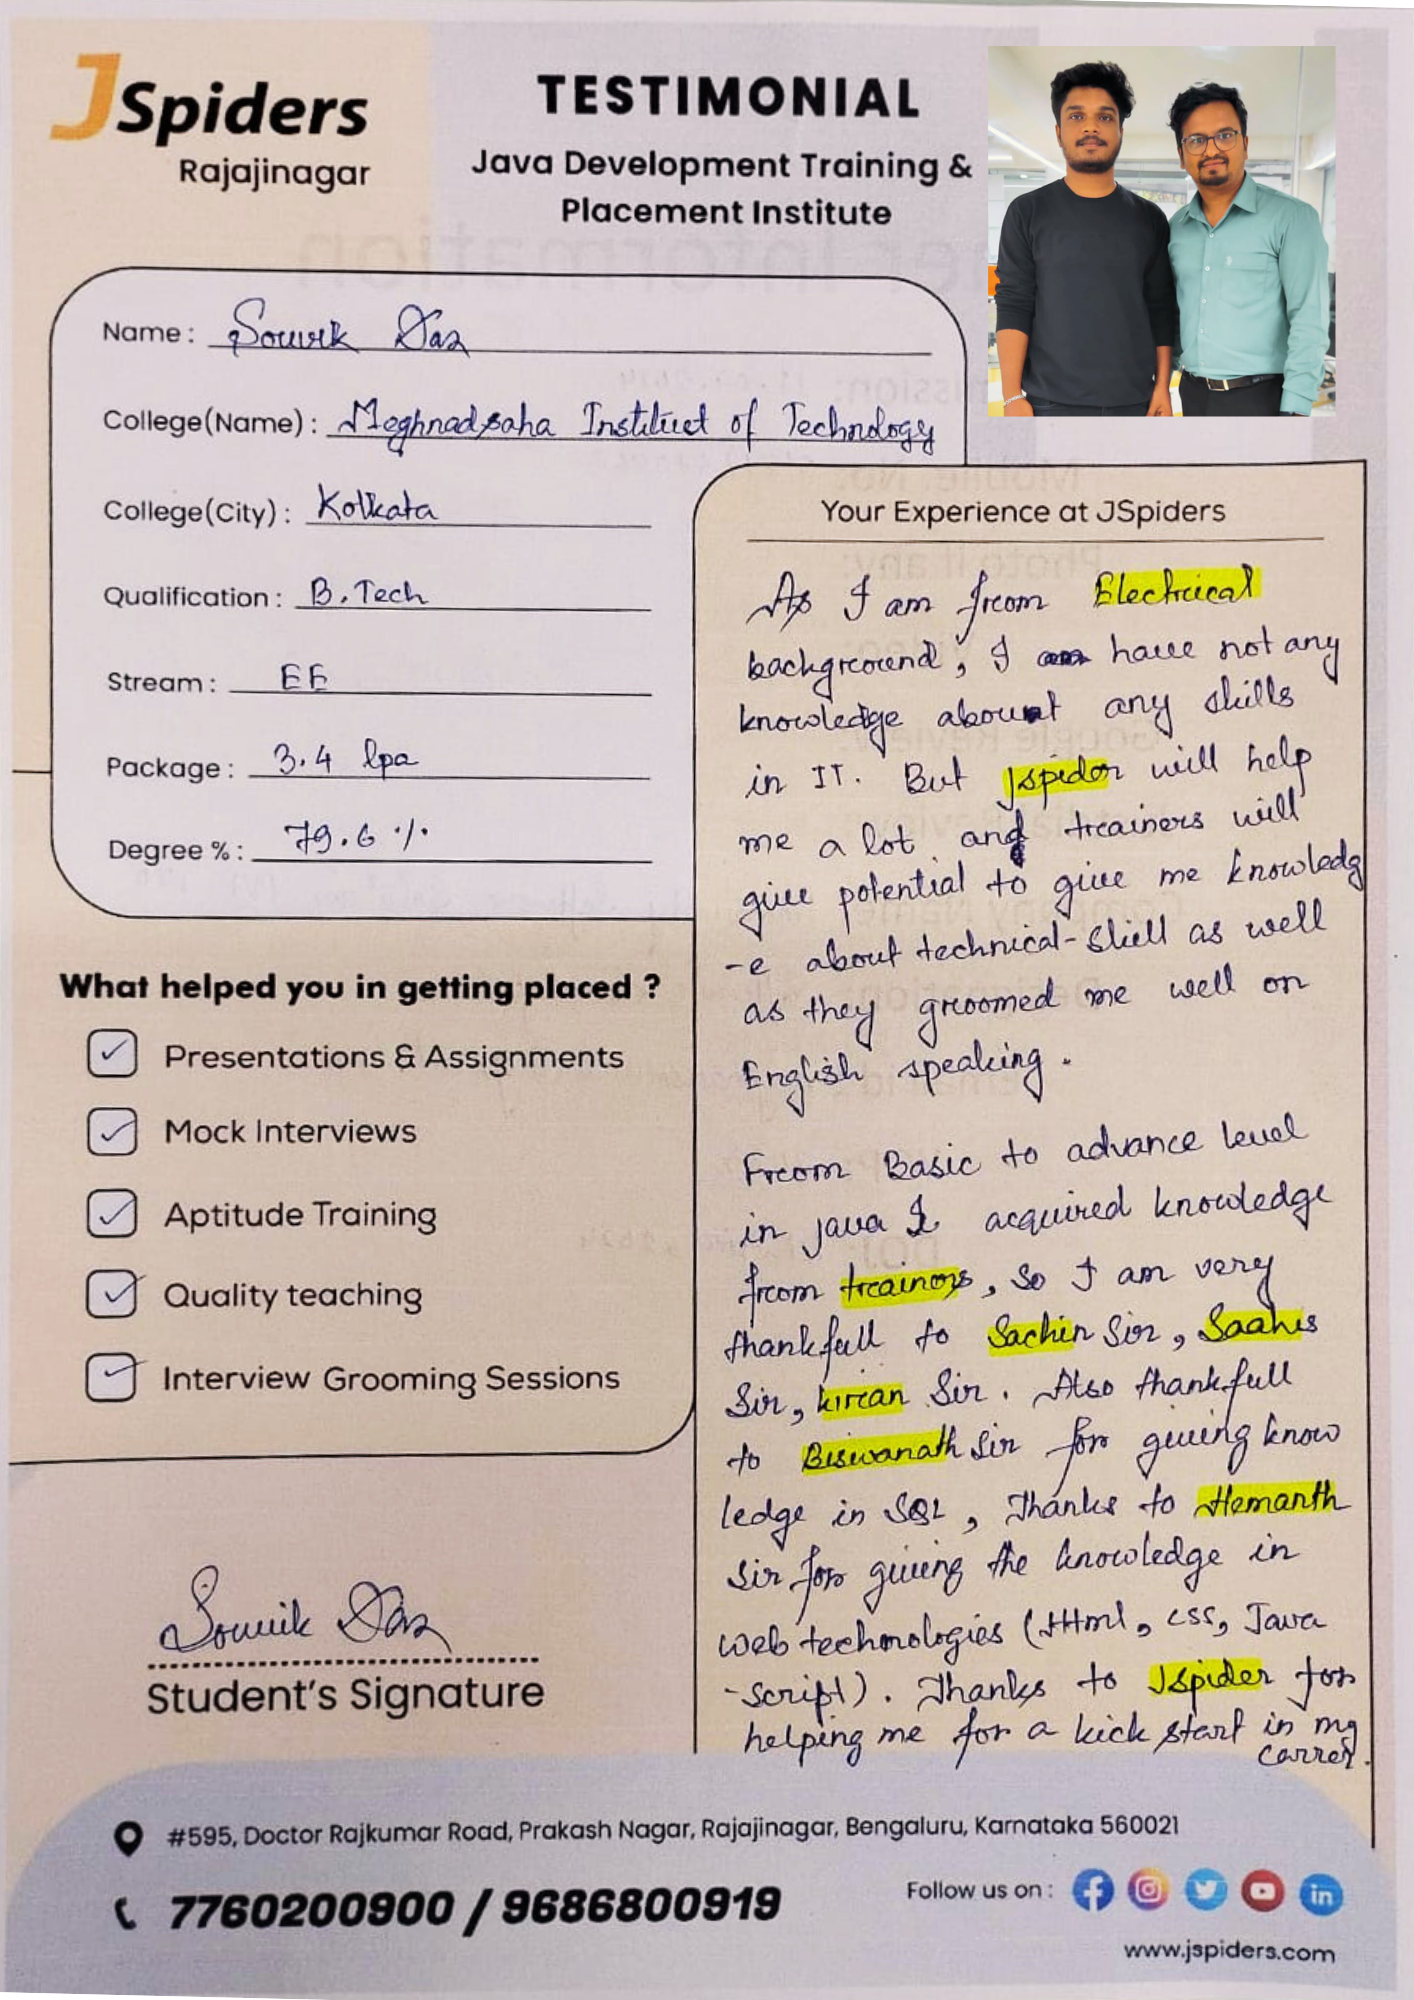 JSpiders
Rajajinagar
TESTIMONIAL
Java Development Training &
Placement Institute
Name : Souvik Das
College(Name) : Meghnadsaha Institiuet of Technology
College(City) : Kolkata
Qualification : B.Tech
Stream : EE
Package : 3.4 lpa
Degree % : 79.6 %
What helped you in getting placed ?
Presentations & Assignments
Mock Interviews
Aptitude Training
Quality teaching
Interview Grooming Sessions
Souvik Das
Student's Signature
Your Experience at JSpiders
As I am from Electrical
background, I have not any
knowledge about any skills
in IT. But Jspider will help
me a lot and trainers will
give potential to give me knowledg
-e about technical-skill as well
as they groomed me well on
English speaking.
From Basic to advance level
in java I acquired knowledge
from trainors, so I am very
thankfull to Sachin Sir, Saahis
Sir, kiran Sir. Also thankfull
to Biswanath Sir for giving know
ledge in SQL, Thanks to Hemanth
Sir for giving the knowledge in
web technologies (Html, css, Java
-script). Thanks to Jspider for
helping me for a kick start in my
carrer.
#595, Doctor Rajkumar Road, Prakash Nagar, Rajajinagar, Bengaluru, Karnataka 560021
7760200900 / 9686800919
Follow us on :
www.jspiders.com